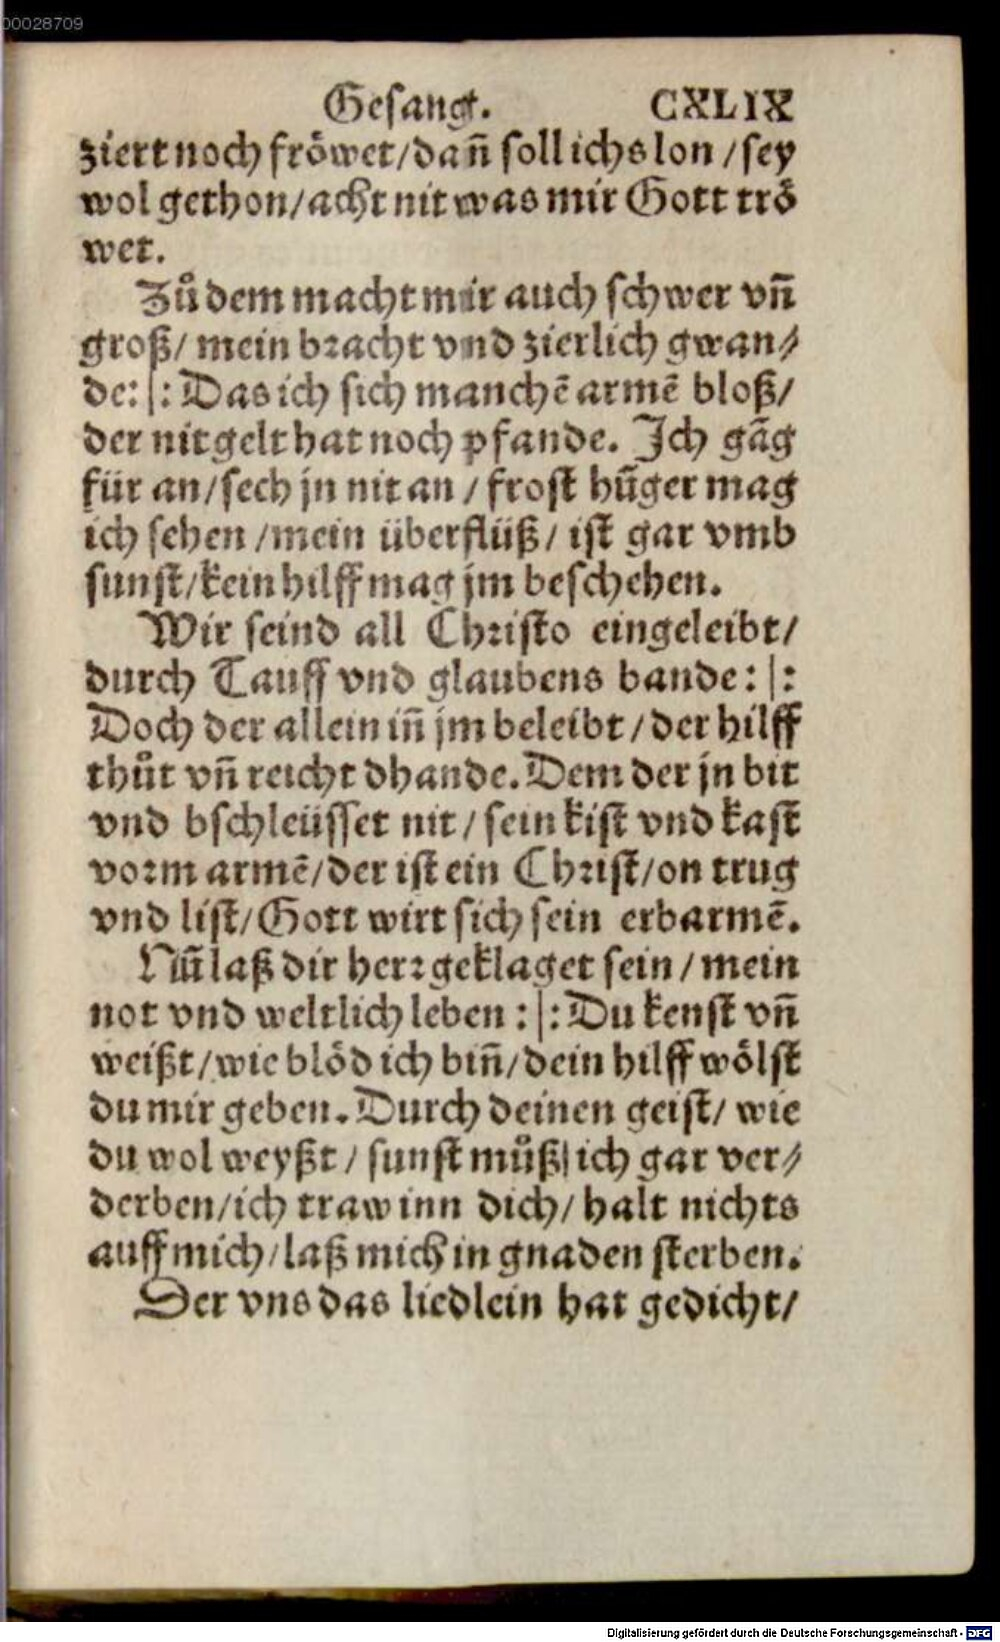 00028709
Gesangt. CXLIX
ziert noch fröwet/dañ soll ichs lon /sey
wol gethon/acht nit was mir Gott trö
wet.
Zů dem macht mir auch schwer vñ
groß/ mein bracht vnd zierlich gwan⸗
de: |: Das ich sich manchē armē bloß/
der nit gelt hat noch pfande. Ich gāg
für an/sech jn nit an / frost hūger mag
ich sehen /mein überflüß/ ist gar vmb
sunst/kein hilff mag jm beschehen.
Wir seind all Christo eingeleibt/
durch Tauff vnd glaubens bande: |:
Doch der allein iñ jm beleibt /der hilff
thůt vñ reicht dhande. Dem der jn bit
vnd bschleüsset nit / sein kist vnd kast
vorm armē/der ist ein Christ/on trug
vnd list/Gott wirt sich sein erbarmē.
Nū laß dir herr geklaget sein / mein
not vnd weltlich leben : |: Du kenst vñ
weißt/wie blöd ich biñ/dein hilff wölst
du mir geben. Durch deinen geist/ wie
du wol weyßt / sunst můß ich gar ver⸗
derben/ich traw inn dich/ halt nichts
auff mich/laß mich in gnaden sterben.
Der vns das liedlein hat gedicht/
Digitalisierung gefördert durch die Deutsche Forschungsgemeinschaft - DFG